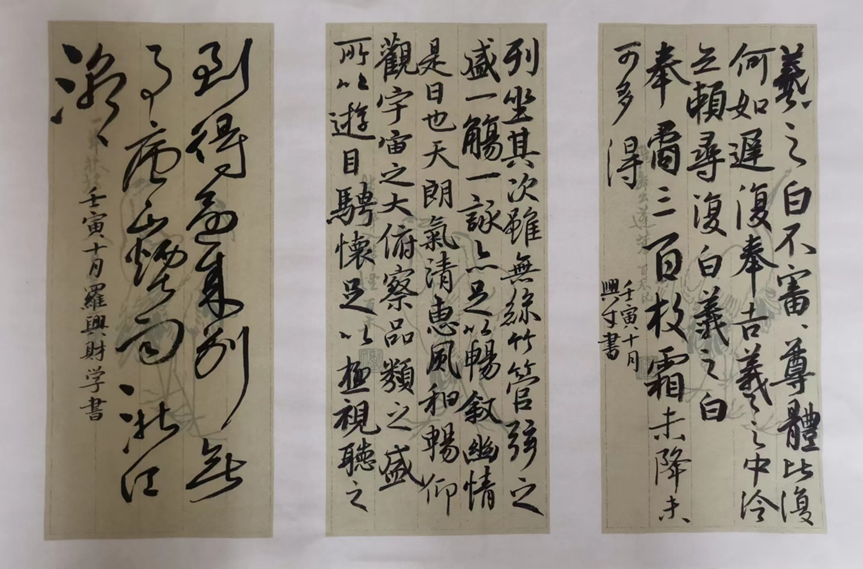 羲之白不審、尊體比復
何如遲復奉告羲之中冷
无賴尋復白羲之白
奉橘三百枚霜未降未
可多得
壬寅十月
興才書
列坐其次雖無絲竹管弦之
盛一觴一詠亦足以暢敘幽情
是日也天朗氣清惠風和暢仰
觀宇宙之大俯察品類之盛
所以遊目騁懷足以極視聽之
到得還來別無
事廬山煙雨浙江
潮、
壬寅十月羅興財学書